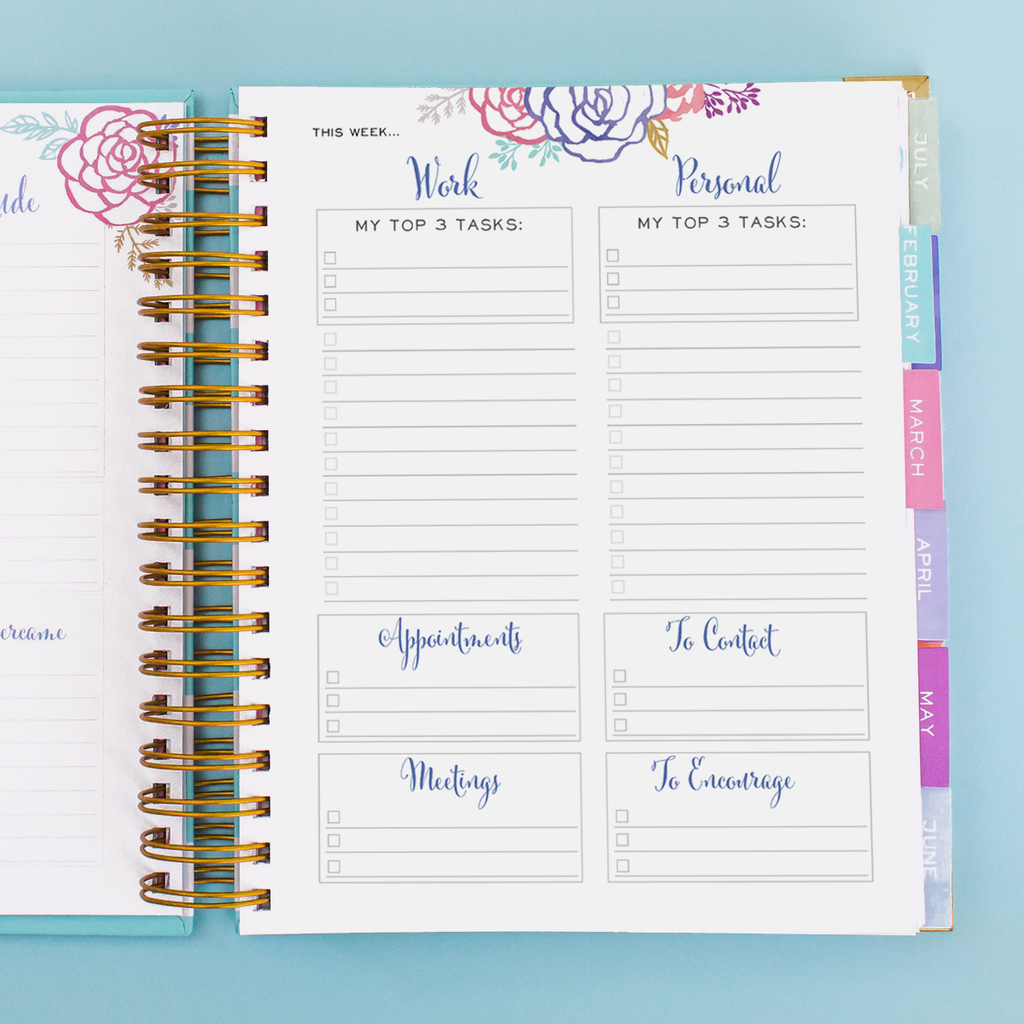 THIS WEEK...
Work
Personal
MY TOP 3 TASKS:
MY TOP 3 TASKS:
Appointments
To Contact
Meetings
To Encourage
JULY
FEBRUARY
MARCH
APRIL
MAY
JUNE